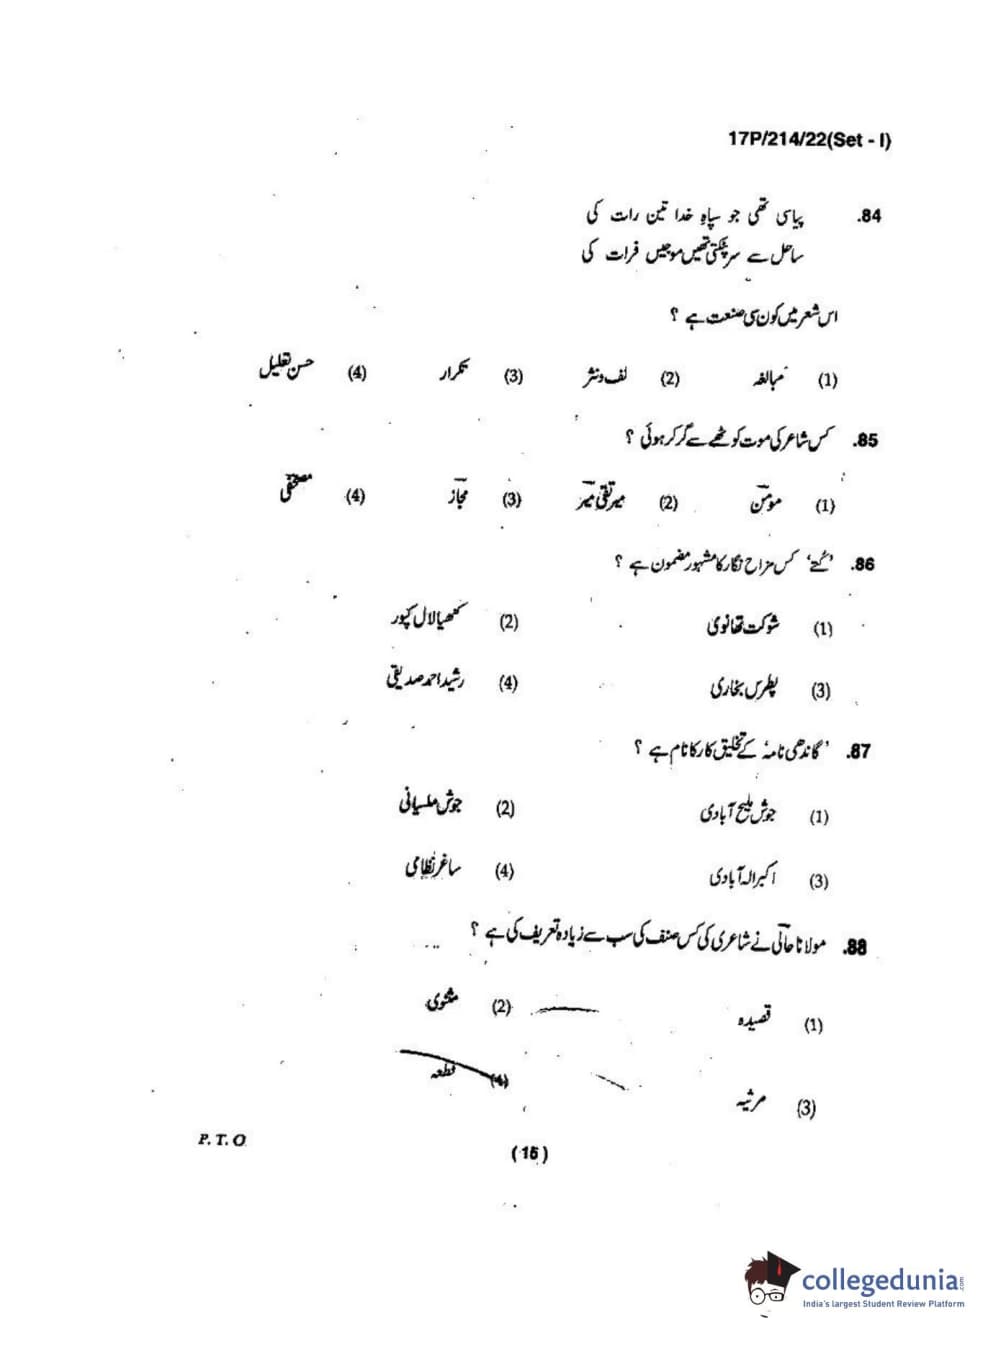 17P/214/22(Set - I)
84. پیاسی تھی جو سپاہِ خدا تین رات کی
ساحل سے سر پٹکتی تھیں موجیں فرات کی
اس شعر میں کون سی صنعت ہے ؟
(1) مبالغہ (2) لف و نشر (3) تکرار (4) حسن تعلیل
85. کس شاعر کی موت کوٹھے سے گر کر ہوئی ؟
(1) مومن (2) میر تقی میر (3) مجاز (4) مصحفی
86. ’کُتے‘ کس مزاح نگار کا مشہور مضمون ہے ؟
(1) شوکت تھانوی (2) کنھیا لال کپور
(3) پطرس بخاری (4) رشید احمد صدیقی
87. ’گاندھی نامہ‘ کے تخلیق کار کا نام ہے ؟
(1) جوش ملیح آبادی (2) جوش ملسیانی
(3) اکبر الہ آبادی (4) ساغر نظامی
88. مولانا حالی نے شاعری کی کس صنف کی سب سے زیادہ تعریف کی ہے ؟
(1) قصیدہ (2) مثنوی
(3) مرثیہ (4) قطعہ
P. T. O
(15)
collegedunia.com
India's largest Student Review Platform